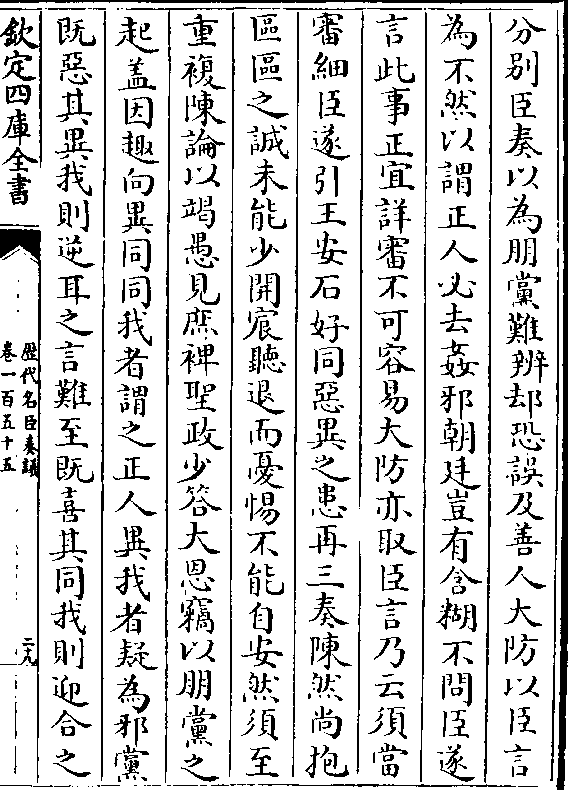 分别臣奏以為朋黨難辨却恐誤及善人大防以臣言
為不然以謂正人必去姦邪朝廷豈有含糊不問臣遂
言此事正宜詳審不可容易大防亦取臣言乃云須當
審細臣遂引王安石好同惡異之患再三奏陳然尚抱
區區之誠未能少開宸聽退而憂惕不能自安然須至
重複陳論以竭愚見庶裨聖政少答大恩竊以朋黨之
起蓋因趣向異同同我者謂之正人異我者疑為邪黨
既惡其異我則逆耳之言難至既喜其同我則迎合之
欽定四庫全書
歴代名臣奏議
卷一百五十五
二九